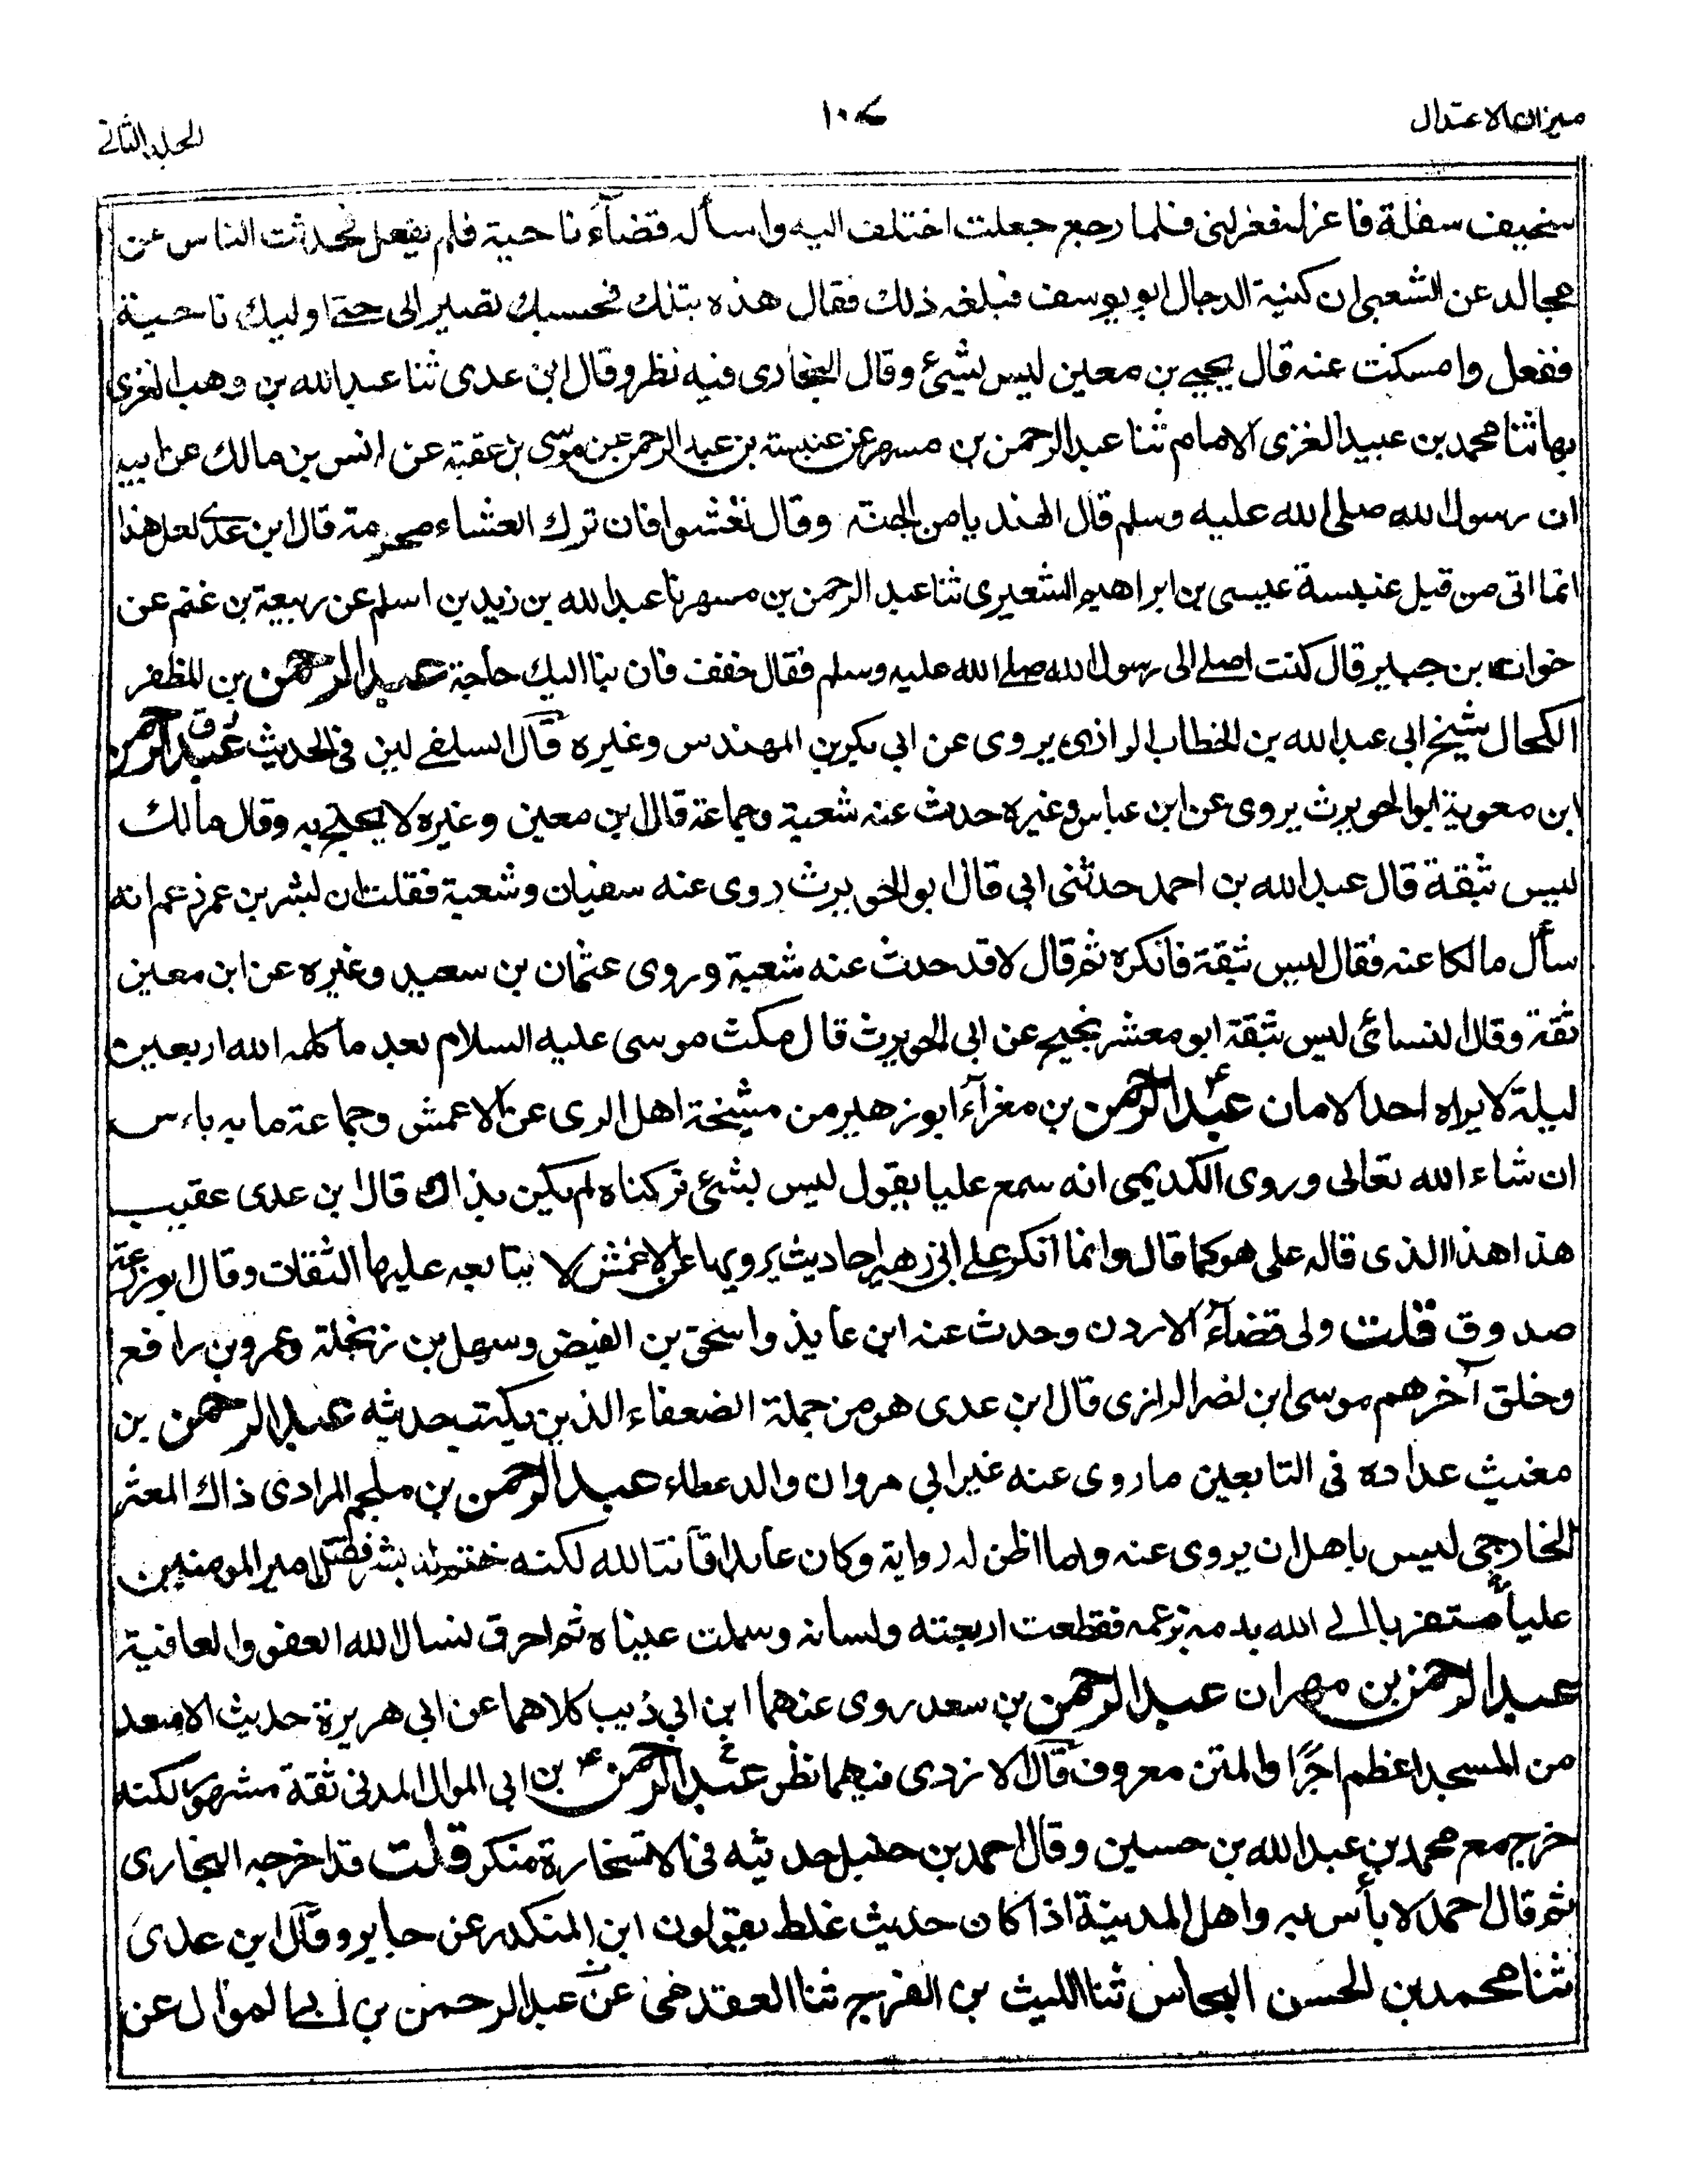 ميزان الاعتدال
١٠٧
المجلد الثانى
سخيف سفلة فاعزله فعزلنى فلما رجع جعلت اختلف اليه واسأله قضآء ناحية فلم يفعل فحدثت الناس عن
مجالد عن الشعبى ان كنية الدجال ابو يوسف فبلغه ذلك فقال هذه بتلك فحسبك تصير الى حتى اوليك ناحية
ففعل وامسكت عنه قال يحيى بن معين ليس بشئ وقال البخارى فيه نظر وقال ابن عدى ثنا عبد الله بن وهب الغزى
بها ثنا محمد بن عبيد الغزى الامام ثنا عبد الرحمن بن مسهر عن عنبسة بن عبد الرحمن عن موسى بن عقبة عن انس بن مالك عن ابيه
ان رسول الله صلى الله عليه وسلم قال الهندبا من الجنة وقال تعشوا فان ترك العشاء مهرمة قال ابن عدى لعل هذا
انما اتى من قبل عنبسة عيسى بن ابراهيم الشعيرى ثنا عبد الرحمن بن مسهر نا عبد الله بن زيد بن اسلم عن ربيعة بن غنم عن
خوات بن جبير قال كنت اصلى الى رسول الله صلى الله عليه وسلم فقال خفف فان بنا اليك حاجة عبد الرحمن بن المظفر
الكحال شيخ ابى عبد الله بن الخطاب الرازى يروى عن ابى بكر بن المهندس وغيره قال السلفى لين فى الحديث د ق عبد الرحمن
ابن معوية ابو الحويرث يروى عن ابن عباس وغيره حدث عنه شعبة وجماعة قال ابن معين وغيره لا يحتج به وقال مالك
ليس بثقة قال عبد الله بن احمد حدثنى ابى قال ابو الحويرث روى عنه سفيان وشعبة فقلت ان بشر بن عمر زعم انه
سأل مالكا عنه فقال ليس بثقة فانكره ثم قال لا قد حدث عنه شعبة وروى عثمان بن سعيد وغيره عن ابن معين
ثقة وقال النسائى ليس بثقة ابو معشر نجيح عن ابى الحويرث قال مكث موسى عليه السلام بعد ما كلمه الله اربعين
ليلة لا يراه احد الا مات ع عبد الرحمن بن مغرآء ابو زهير من مشيخة اهل الرى عن الاعمش وجماعة ما به باس
ان شاء الله تعالى وروى الكديمى انه سمع عليا يقول ليس بشئ تركناه لم يكن بذاك قال ابن عدى عقيب
هذا هذا الذى قاله على هو كما قال وانما انكر على ابى زهير احاديث يرويها عن الاعمش لا يتابعه عليها الثقات وقال ابو زرعة
صدوق قلت ولى قضآء الاردن وحدث عنه ابن عايذ واسحق بن الفيض وسهل بن زنجلة وعمرو بن رافع
وخلق آخرهم موسى ابن نصر الرازى قال ابن عدى هو من جملة الضعفاء الذين يكتب حديثه عبد الرحمن بن
مغيث عداده فى التابعين ما روى عنه غير ابى مروان والد عطاء عبد الرحمن بن ملجم المرادى ذاك المعثر
الخارجى ليس باهل ان يروى عنه وما اظن له رواية وكان عابدا قانتا لله لكنه ختم له بشر فقتل امير المومنين
عليا متقربا الى الله بدمه بزعمه فقطعت اربعته ولسانه وسملت عيناه ثم احرق نسال الله العفو والعافية
عبد الرحمن بن مهران عبد الرحمن بن سعد روى عنهما ابن ابى ذيب كلاهما عن ابى هريرة حديث الابعد
من المسجد اعظم اجرًا والمتن معروف قال الازدى فيهما نظر خ ع عبد الرحمن بن ابى الموال المدنى ثقة مشهور لكنه
خرج مع محمد بن عبد الله بن حسين وقال احمد بن حنبل حديثه فى الاستخارة منكر قلت قد اخرجه البخارى
ثم قال احمد لا بأس به واهل المدينة اذا كان حديث غلط يقولون ابن المنكدر عن جابر وقال ابن عدى
ثنا محمد بن الحسن النحاس ثنا الليث بن الفرج ثنا العقدى عن عبد الرحمن بن ابى الموال عن